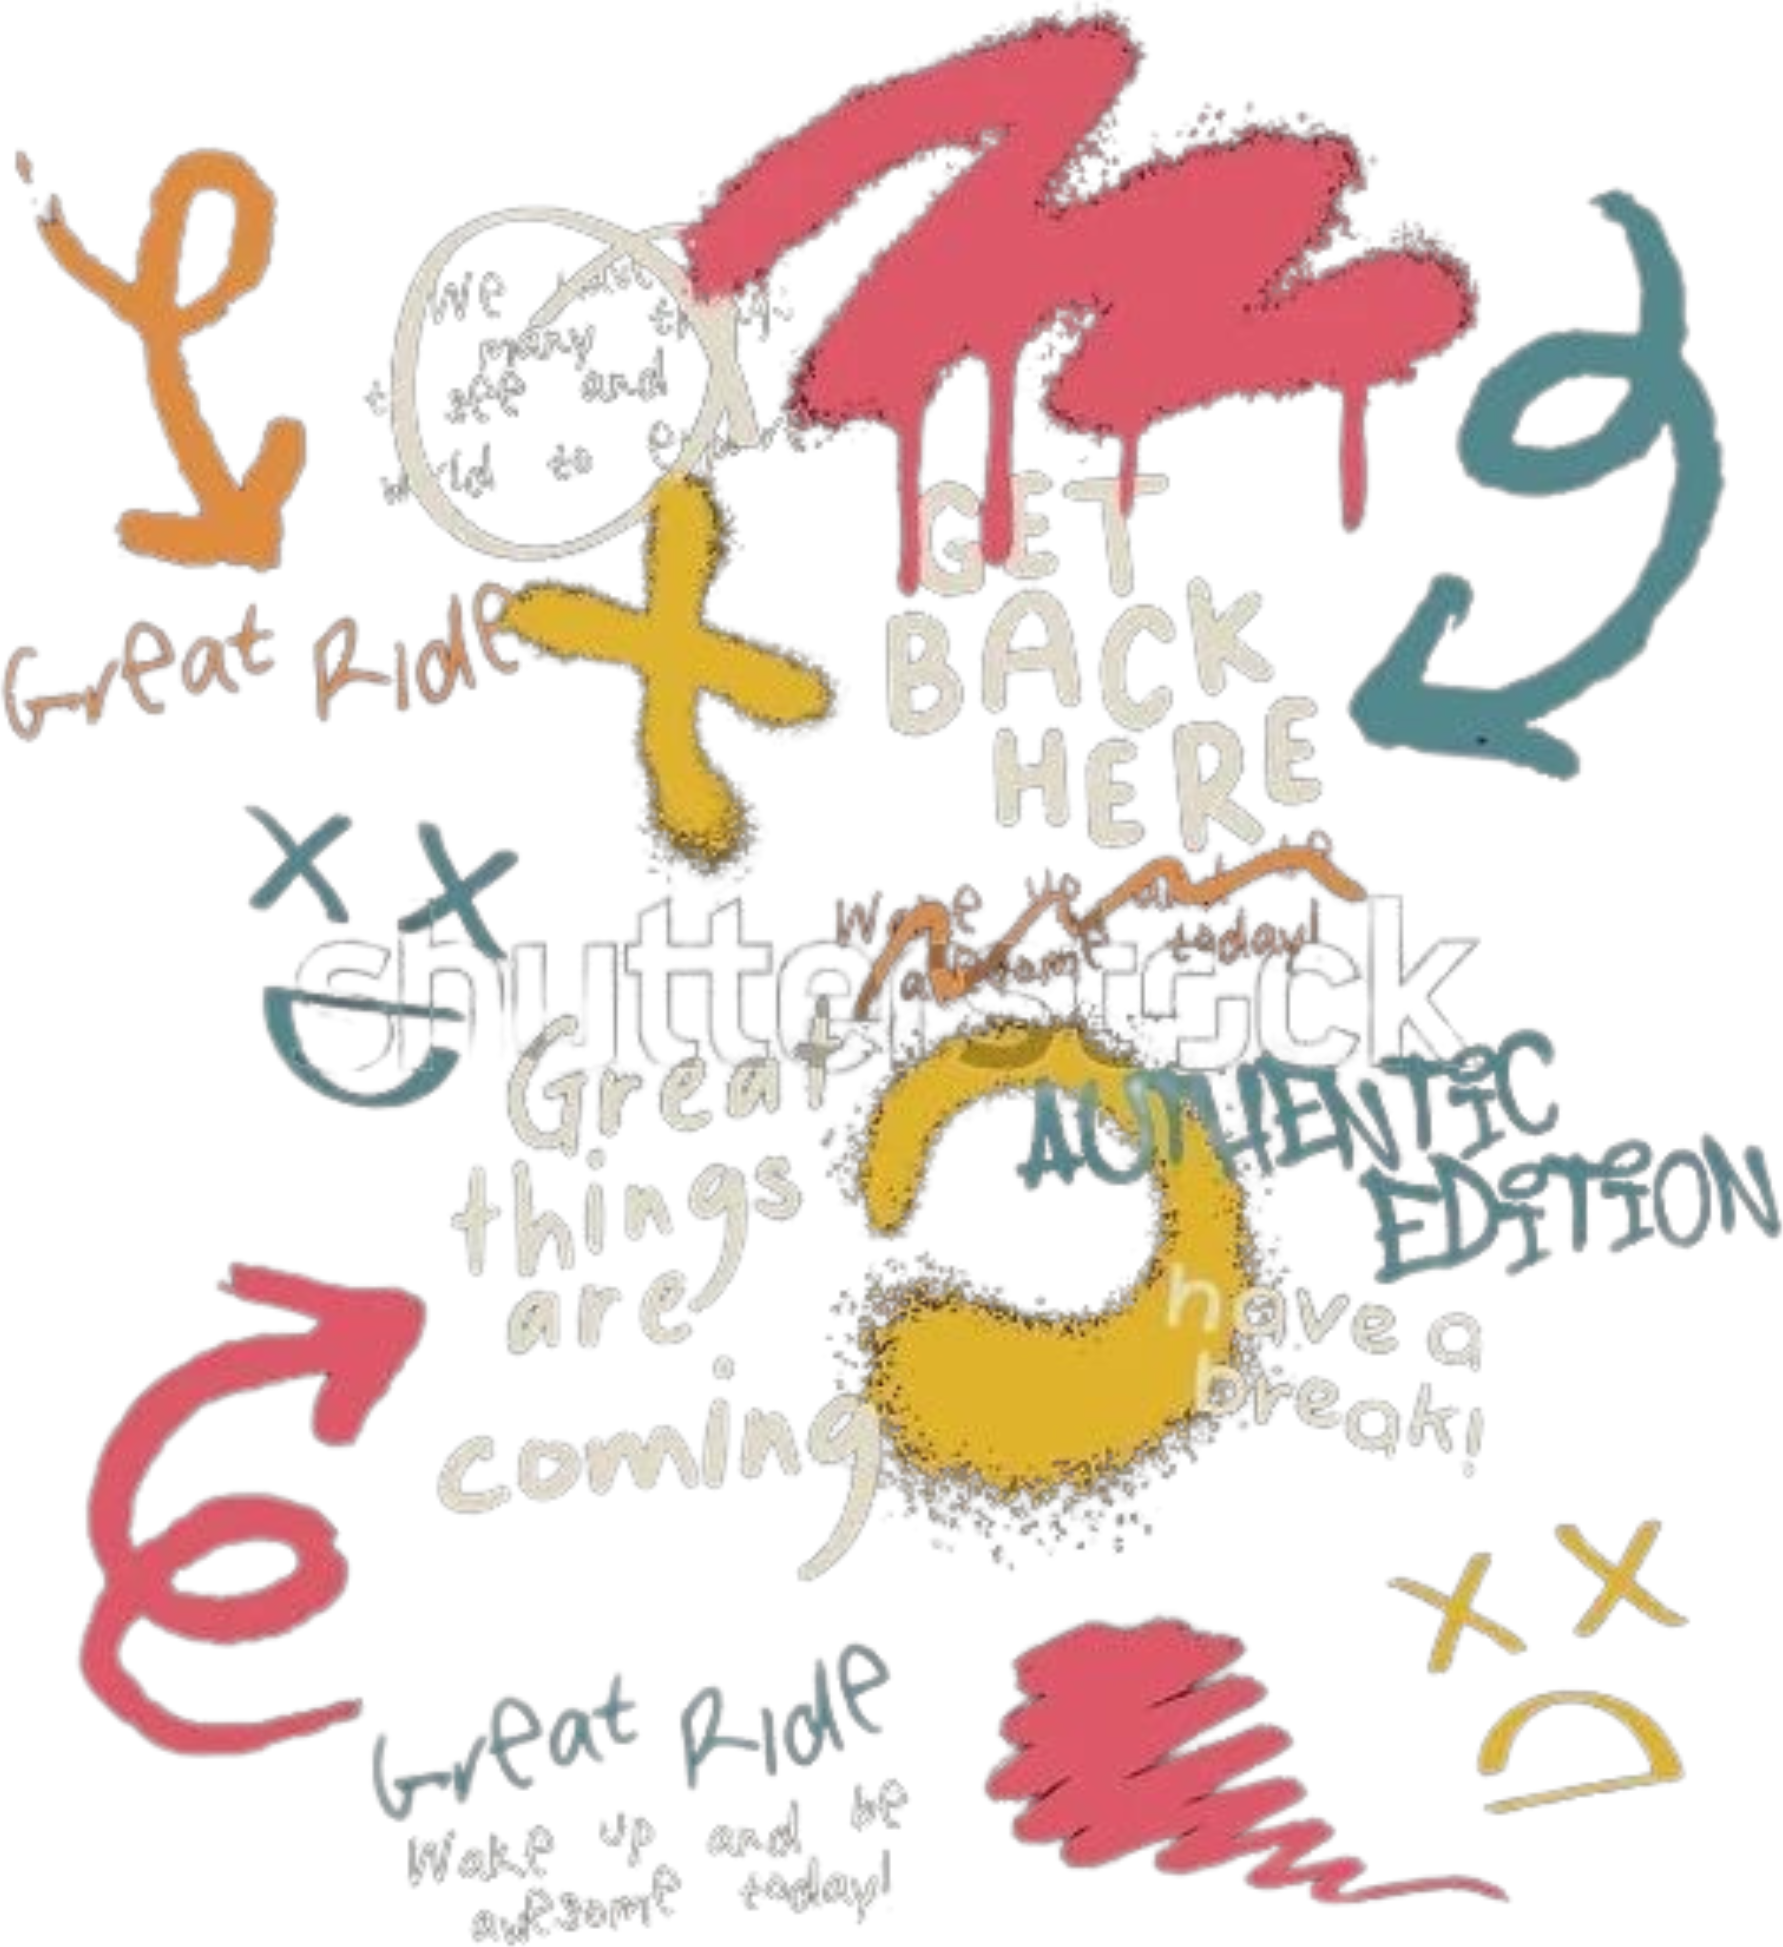 We have
many things
to see and
world to explore
GET
BACK
HERE
Great Ride
Wake up and be
awesome today!
shutterstock
Great
things
are
coming
AUTHENTIC
EDITION
have a
break!
Great Ride
Wake up and be
awesome today!